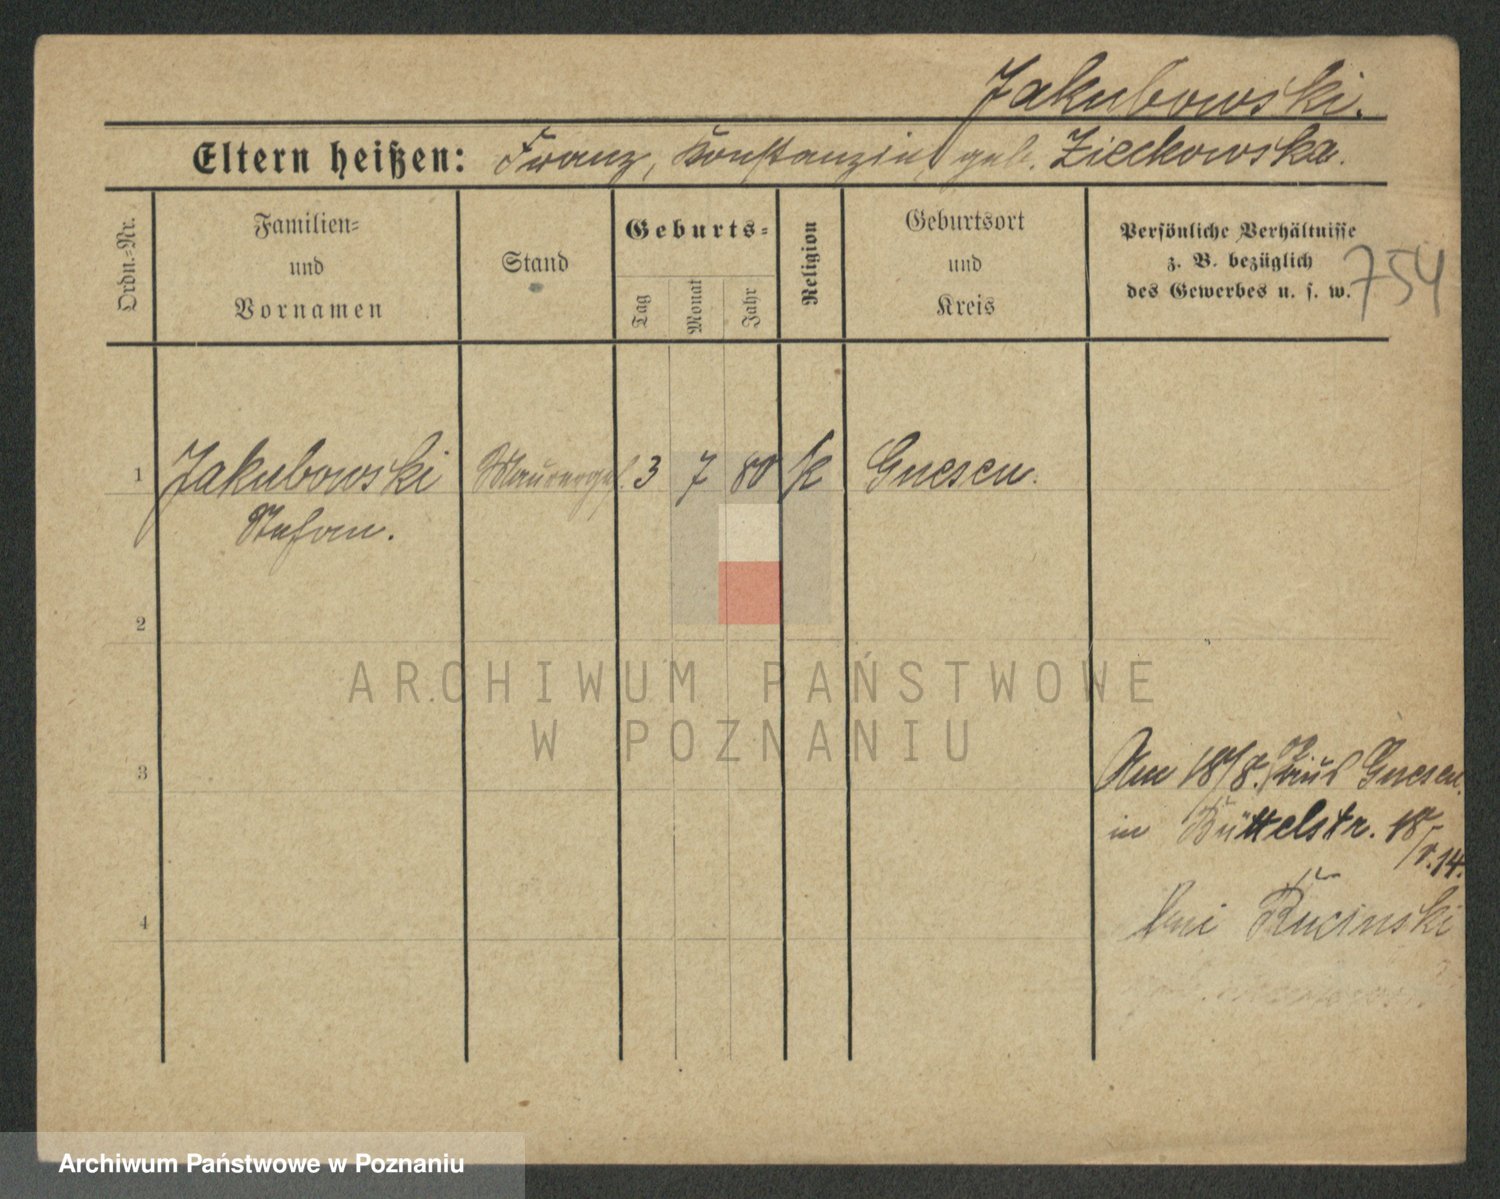 Jakubowski.
Eltern heißen: Franz, Konstanzia geb. Zieckowska.
Ordn.-Nr.
Familien-
und
Vornamen
Stand
Geburts-
Tag
Monat
Jahr
Religion
Geburtsort
und
Kreis
Persönliche Verhältnisse
z. B. bezüglich
des Gewerbes u. s. w.
754
1 Jakubowski Maurerges. 3 7 80 k Gnesen.
Stefan.
2
3
Am 18/8. Gnesen
in Büttelstr. 18
/8.14.
4
bei Rucinski
ARCHIWUM PAŃSTWOWE
W POZNANIU
Archiwum Państwowe w Poznaniu